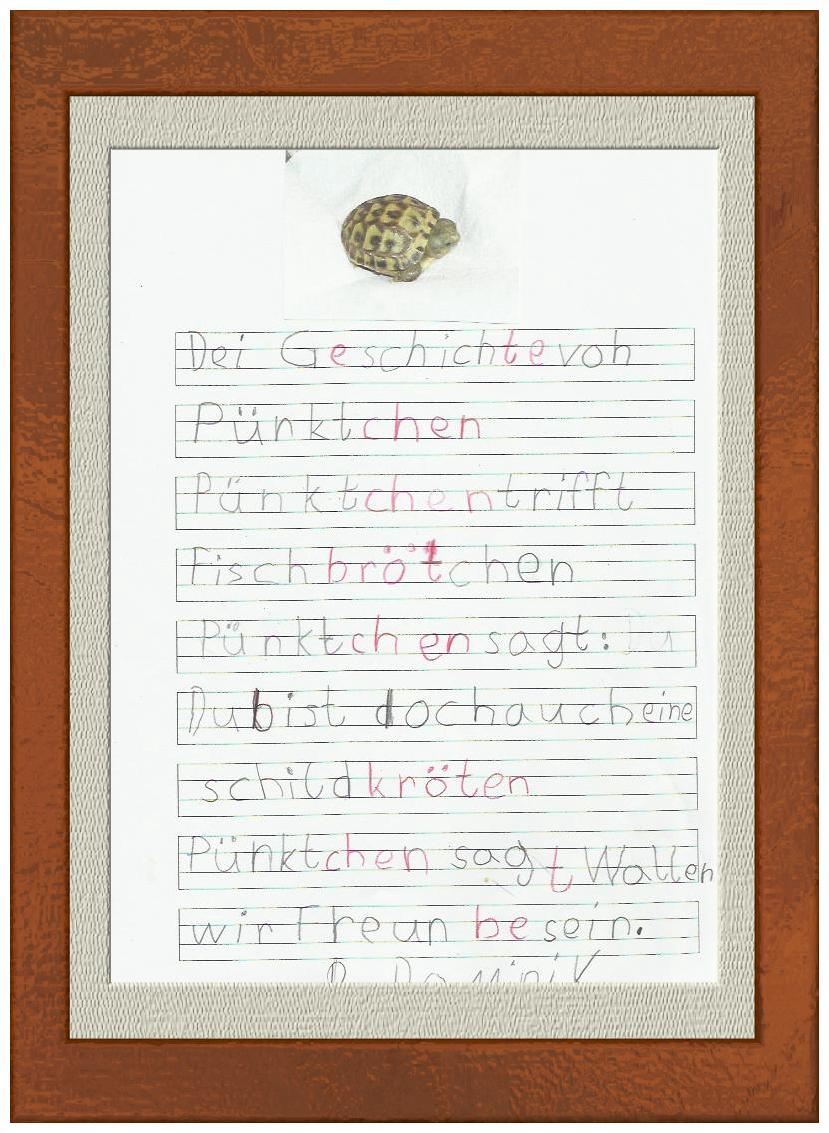 Dei Geschichte von
Pünktchen
Pünktchen trifft
Fischbrötchen
Pünktchen sagt:
Du bist doch auch eine
schildkröten
Pünktchen sagt Wallen
wir Freun be sein.
Dominik